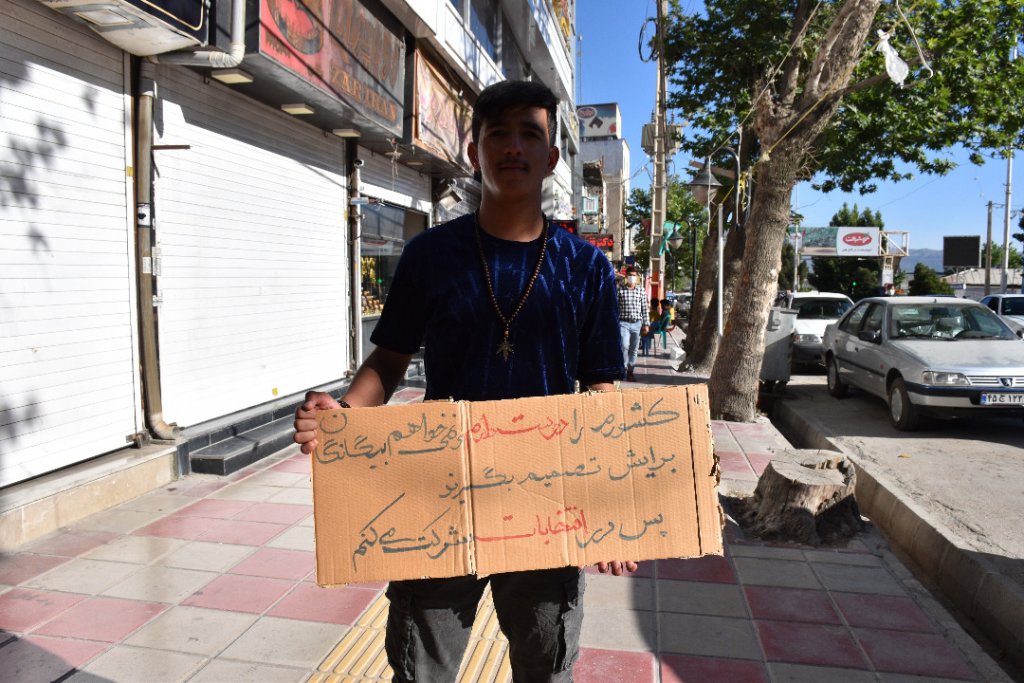 کشورم را دوست دارم و نمی خواهم بیگانگان
برایش تصمیم بگیرند
پس در انتخابات شرکت می کنم